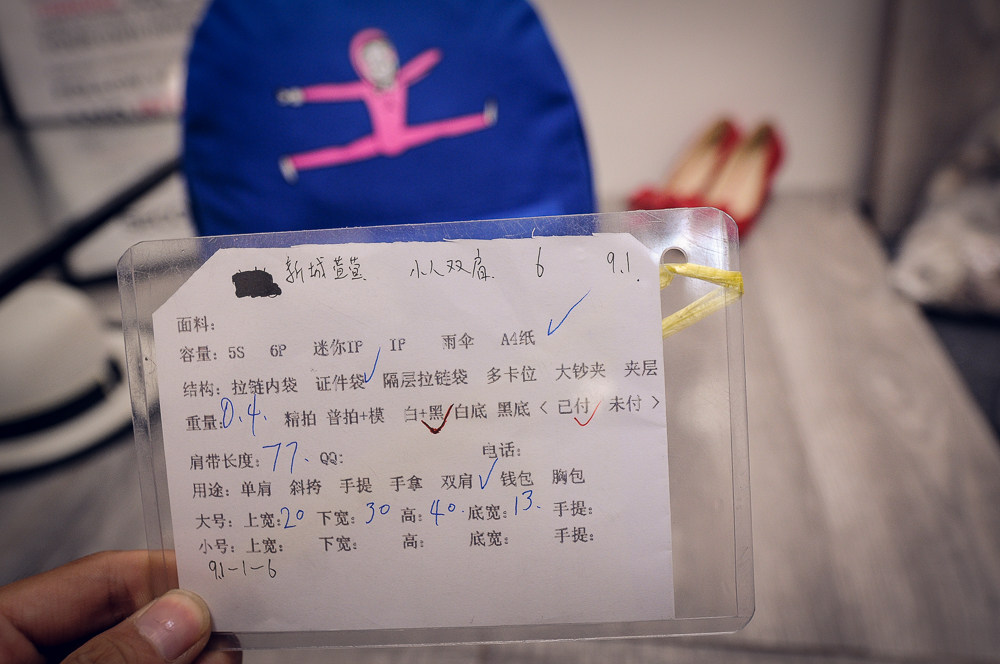 新城萱萱 小人双肩 6 9.1.
面料：
容量：5S 6P 迷你IP IP 雨伞 A4纸 ✓
结构：拉链内袋 证件袋 ✓ 隔层拉链袋 多卡位 大钞夹 夹层
重量：0.4. 精拍 普拍+模 白+黑 ✓ 白底 黑底 < 已付 ✓ 未付 >
肩带长度：77. QQ： 电话：
用途：单肩 斜挎 手提 手拿 双肩 ✓ 钱包 胸包
大号：上宽：20 下宽：30 高：40. 底宽：13. 手提：
小号：上宽： 下宽： 高： 底宽： 手提：
91-1-6